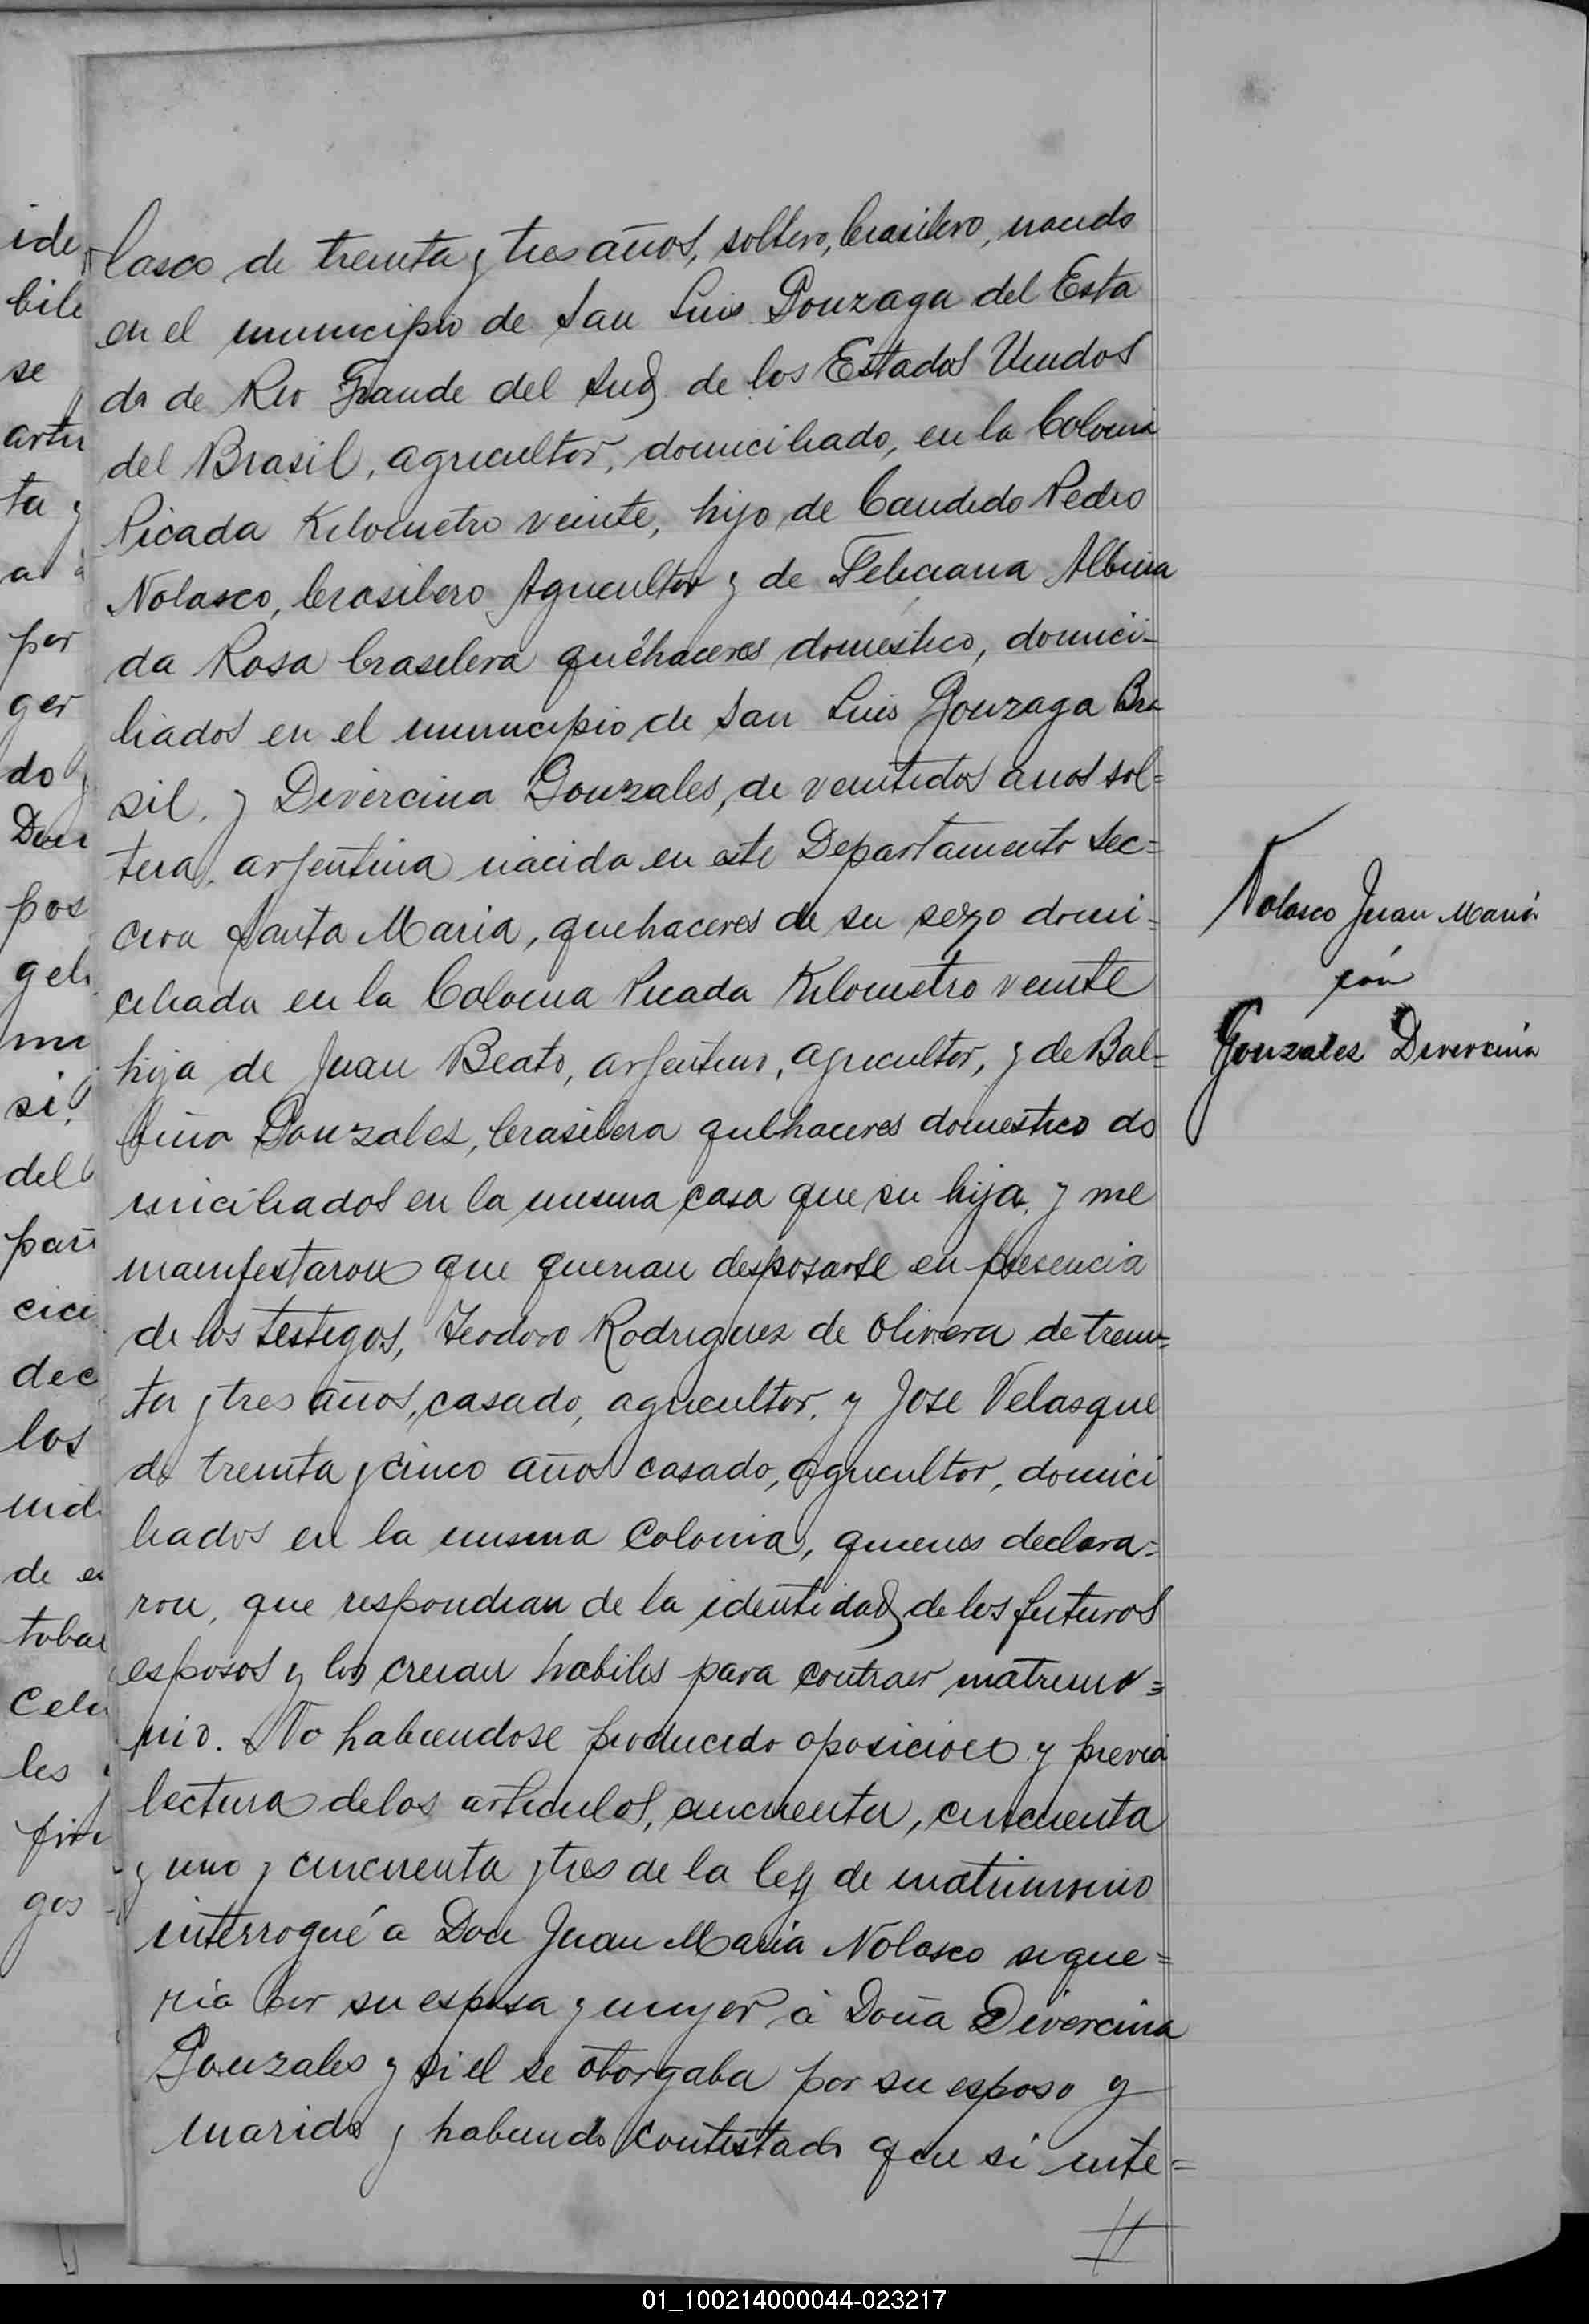 lasco de treinta y tres años, soltero, brasilero, nacido
en el municipio de San Luis Gonzaga del Esta
do de Rio Grande del Sud de los Estados Unidos
del Brasil, agricultor, domiciliado, en la Colonia
Picada Kilometro veinte, hijo de Candido Pedro
Nolasco, brasilero Agricultor y de Feliciana Albina
da Rosa brasilera quéhaceres doméstico, domici-
liados en el municipio de San Luis Gonzaga Bra
sil, y Divercina Gonzales, de veintidos anos sol=
tera, arjentina nacida en este Departamento Sec=
cion Santa Maria, quehaceres de su sexo domi=
ciliada en la Colonia Picada Kilometro veinte
hija de Juan Beato, arjentino, agricultor, y de Bal=
bina Gonzales, brasilera quehaceres domestico do
miciliados en la misma casa que su hija, y me
manifestaron que querian desposarse en presencia
de los testigos, Teodoro Rodriguez de Olivera de trein=
ta y tres años, casado, agricultor, y Jose Velasque
de treinta y cinco años casado, agricultor, domici
liados en la misma Colonia, quienes declara=
ron, que respondian de la identidad de los futuros
esposos y los creian habiles para contraer matrimo=
nio. No habiendose producido oposicion y previa
lectura de los articulos, cincuenta, cincuenta
y uno y cincuenta y tres de la ley de matrimonio
interrogué a Don Juan Maria Nolasco si que=
ria por su esposa y mujer à Doña Divercina
Gonzales y si el se otorgaba por su esposo y
marido y habiendo contestado que si inte=
Nolasco Juan Maria
con
Gonzales Divercina
ide
bile
se
artu
ta y
a
por
ger
do
pos
geli
mi
si
del
pari
cici
dec
los
nid
de
toba
Cele
les
gos
01_100214000044-023217